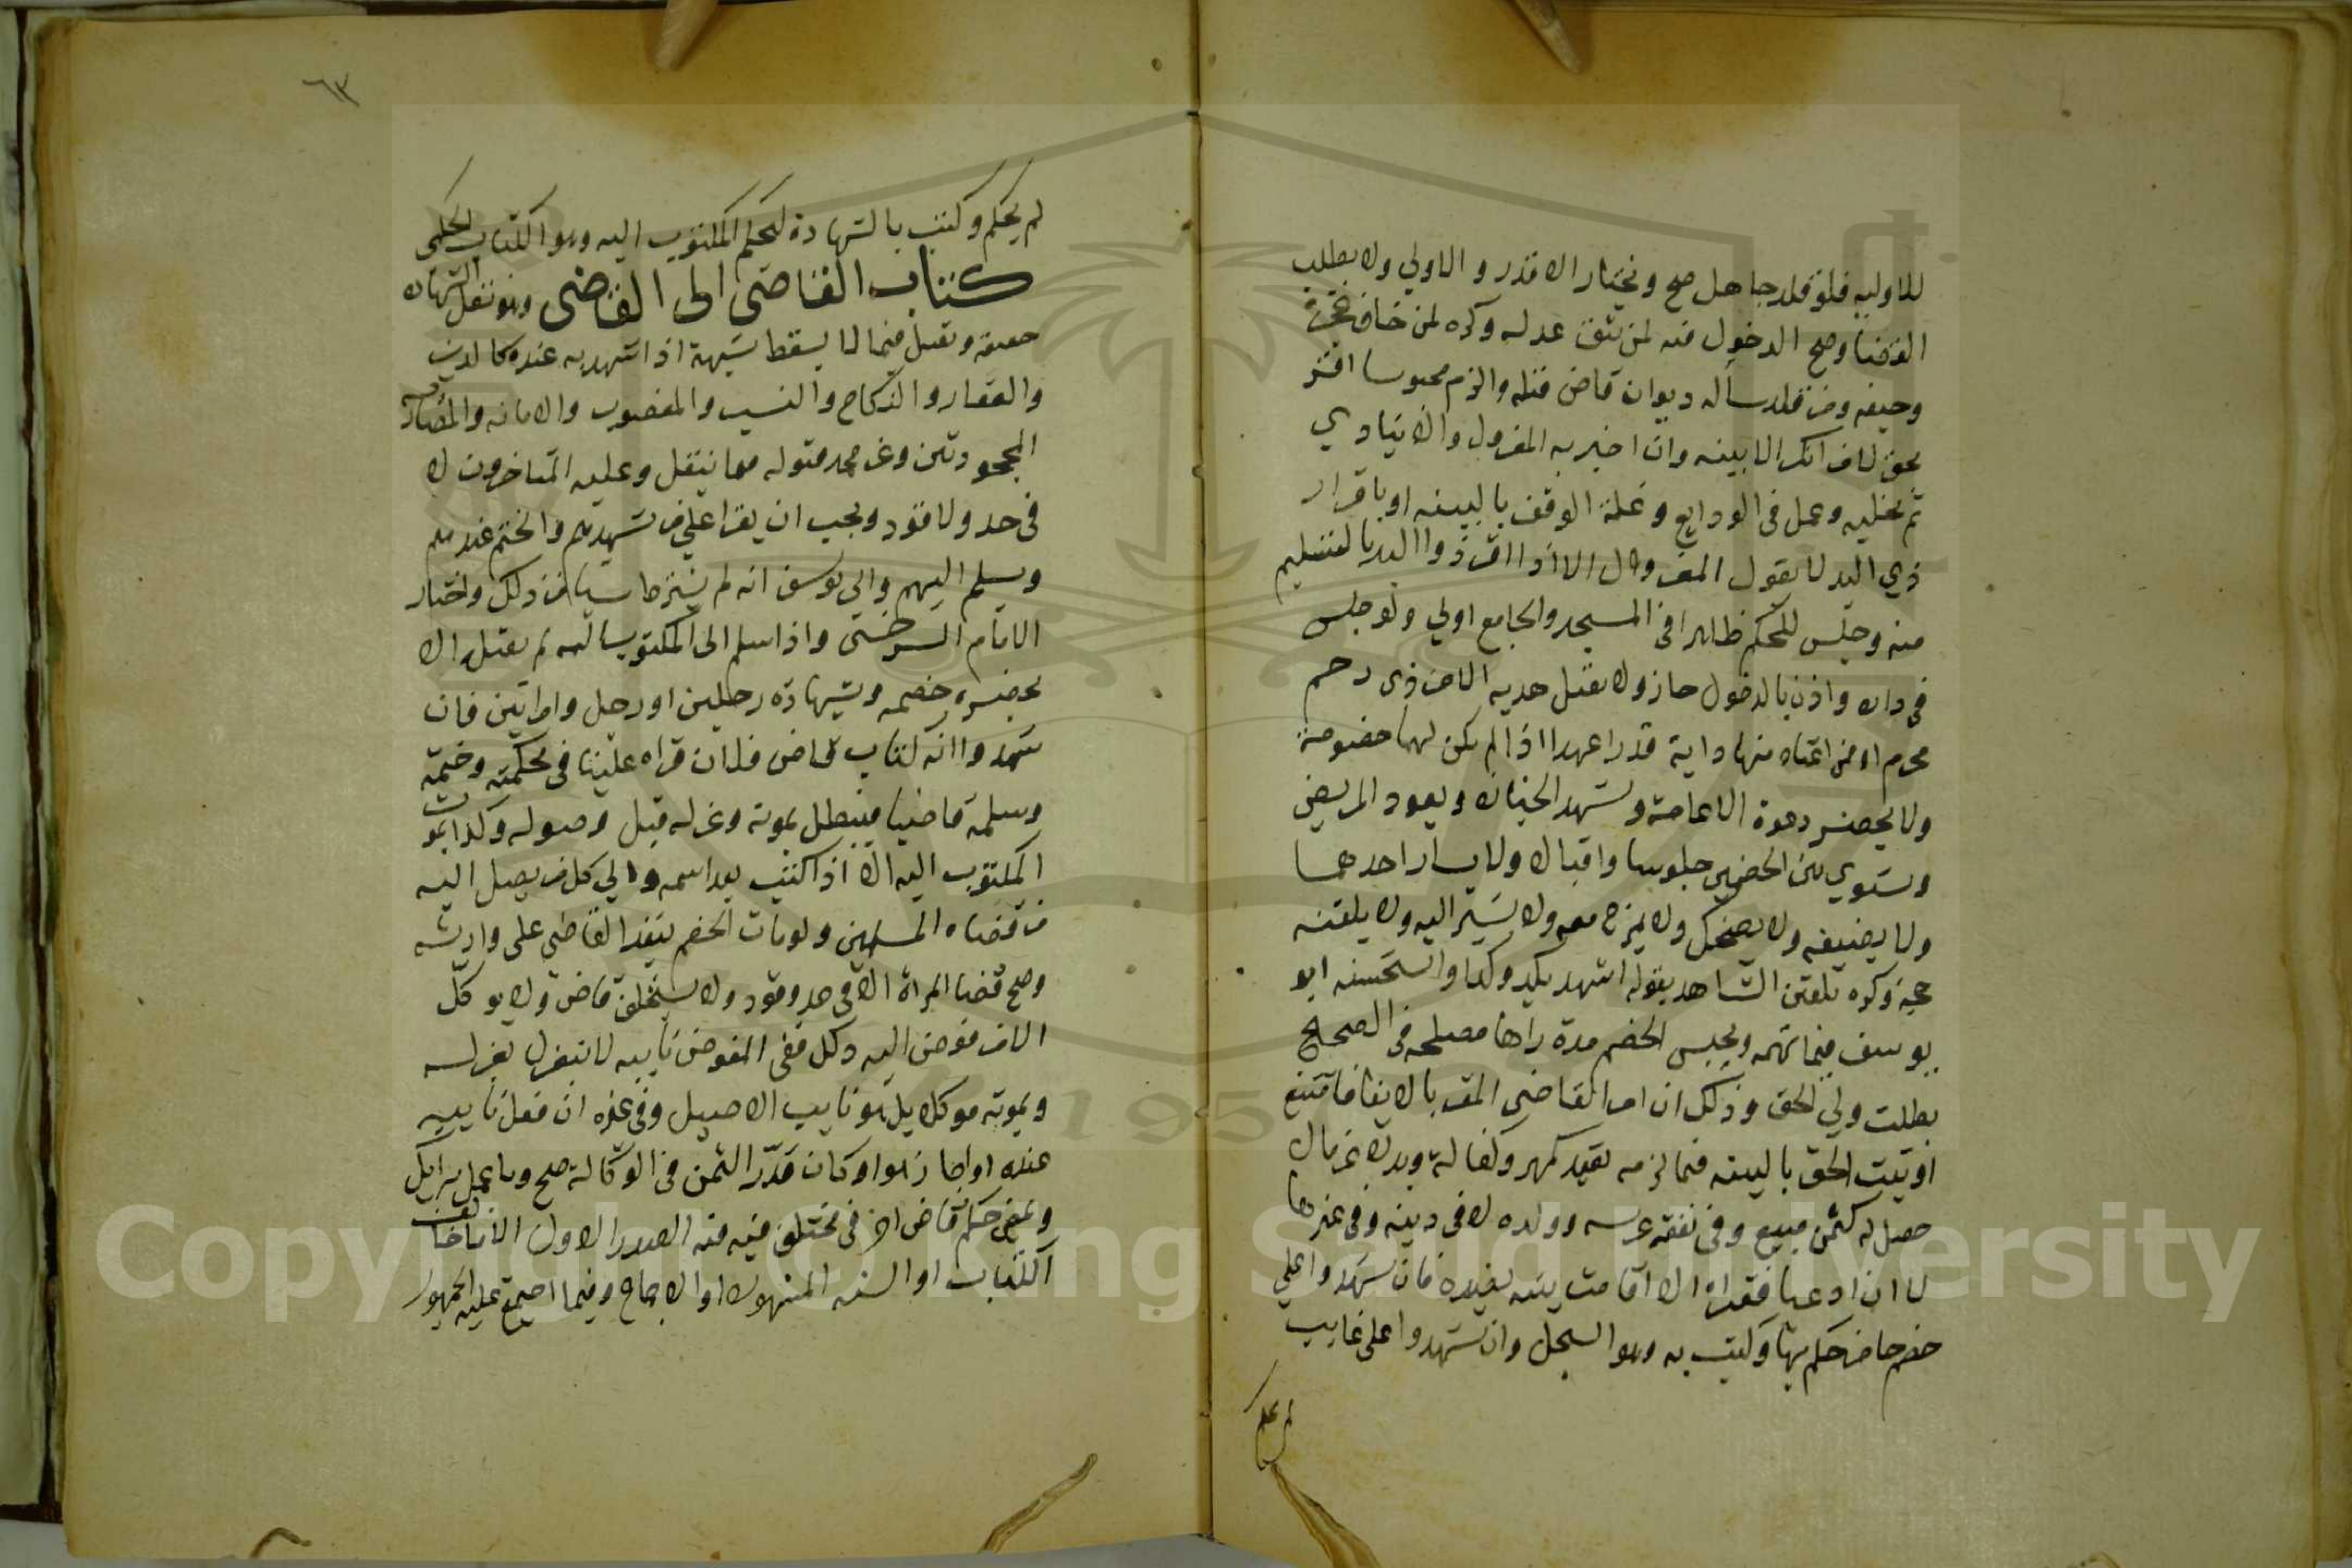 للاوليه فلو قلد جاهل صح ويختار الاقدر والاولي ولا يطلب
القضا وصح الدخول فيه لمن يثق عدله وكره لمن خاف عجزه
وحيفه ومن قلد سأل ديوان قاض قبله والزم محبوسا اقر
بحق لا من انكر الا ببينه وان اخبر به المعزول والا ينادي
ثم يخليه وعمل في الودايع وغلة الوقف بالبينه او باقرار
ذي اليد لا بقول المعزول الا اذا اقر ذو اليد بالتسليم
منه وجلس للحكم ظاهرا في المسجد والجامع اولي ولو جلس
في داره واذن بالدخول جاز ولا يقبل هديه الا من ذي رحم
محرم او من اعتاد مهاداته قدرا عهد اذا لم يكن لهما خصومة
ولا يحضر دعوة الا عامة ويشهد الجنازه ويعود المريض
ويسوي بين الخصمين جلوسا واقبالا ولا يسار احدهما
ولا يضيفه ولا يضحك ولا يمزح معه ولا يشير اليه ولا يلقنه
حجة وكره تلقين الشاهد بقوله اشهد بكذا وكذا واستحسنه ابو
يوسف فيما لا تهمه ويحبس الخصم مدة راها مصلحه في الصحيح
بطلب ولي الحق وذلك ان امر القاضي المقر بالايفا فامتنع
او ثبت الحق بالبينه فيما لزمه بعقد كمهر وكفالة وبدلا عن مال
حصل له كثمن مبيع وفي نفقه عرسه وولده لا في دينه وفي غيرها
لا ان ادعي فقرا الا اذا قامت بينه بضده فان شهدوا علي
خصم حاضر حكم بها وكتب به وهو السجل وان شهدوا على غايب
لم يحكم
٦٣
لم يحكم وكتب بالشهادة ليحكم المكتوب اليه وهو الكتاب الحكمى
كتاب القاضى الى القاضى وهو نقل الشهاده
حقيقه ويقبل فيما لا يسقط بشبهة اذا شهد به عنده كالدين
والعقار والنكاح والنسب والمغصوب والامانه والمضاربه
المجحودتين وعن محمد قبوله فيما ينقل وعليه المتاخرون لا
في حد ولا قود ويجب ان يقرا علي من يشهدهم والختم عندهم
ويسلم اليهم وابي يوسف انه لم يشترط شيا من ذلك واختار
الامام السرخسى واذا سلم الى المكتوب اليه لم يقبله الا
بحضره خصمه وبشهادة رجلين او رجل وامراتين فان
شهدوا انه كتاب قاض فلان قراه علينا في محكمته وختمه
وسلمه قاضيا فيبطل بموته وعزله قبل وصوله وكذا بموت
المكتوب اليه الا اذا كتب بعد اسمه والي كل من يصل اليه
من قضاه المسلمين ولو مات الخصم ينفذ القاضي على وارثه
وصح قضا المراة الا في حد وقود ولا يستخلف قاض ولا يوكل
الا من فوض اليه ذلك ففي المفوض نايبه لا ينعزل بعزله
وبموته موكلا بل هو نايب الاصيل وفي غيره ان فعل نايبه
عنده او اجازه او كان قدر الثمن في الوكالة صح وما عمل برايك
ويمضي حكم قاض اخر في مختلف فيه في الصدر الاول الا ما خالف
الكتاب او السنه المشهوره او الاجماع وفيما اجمع عليه الجمهور
Copyright © King Saud University
1957